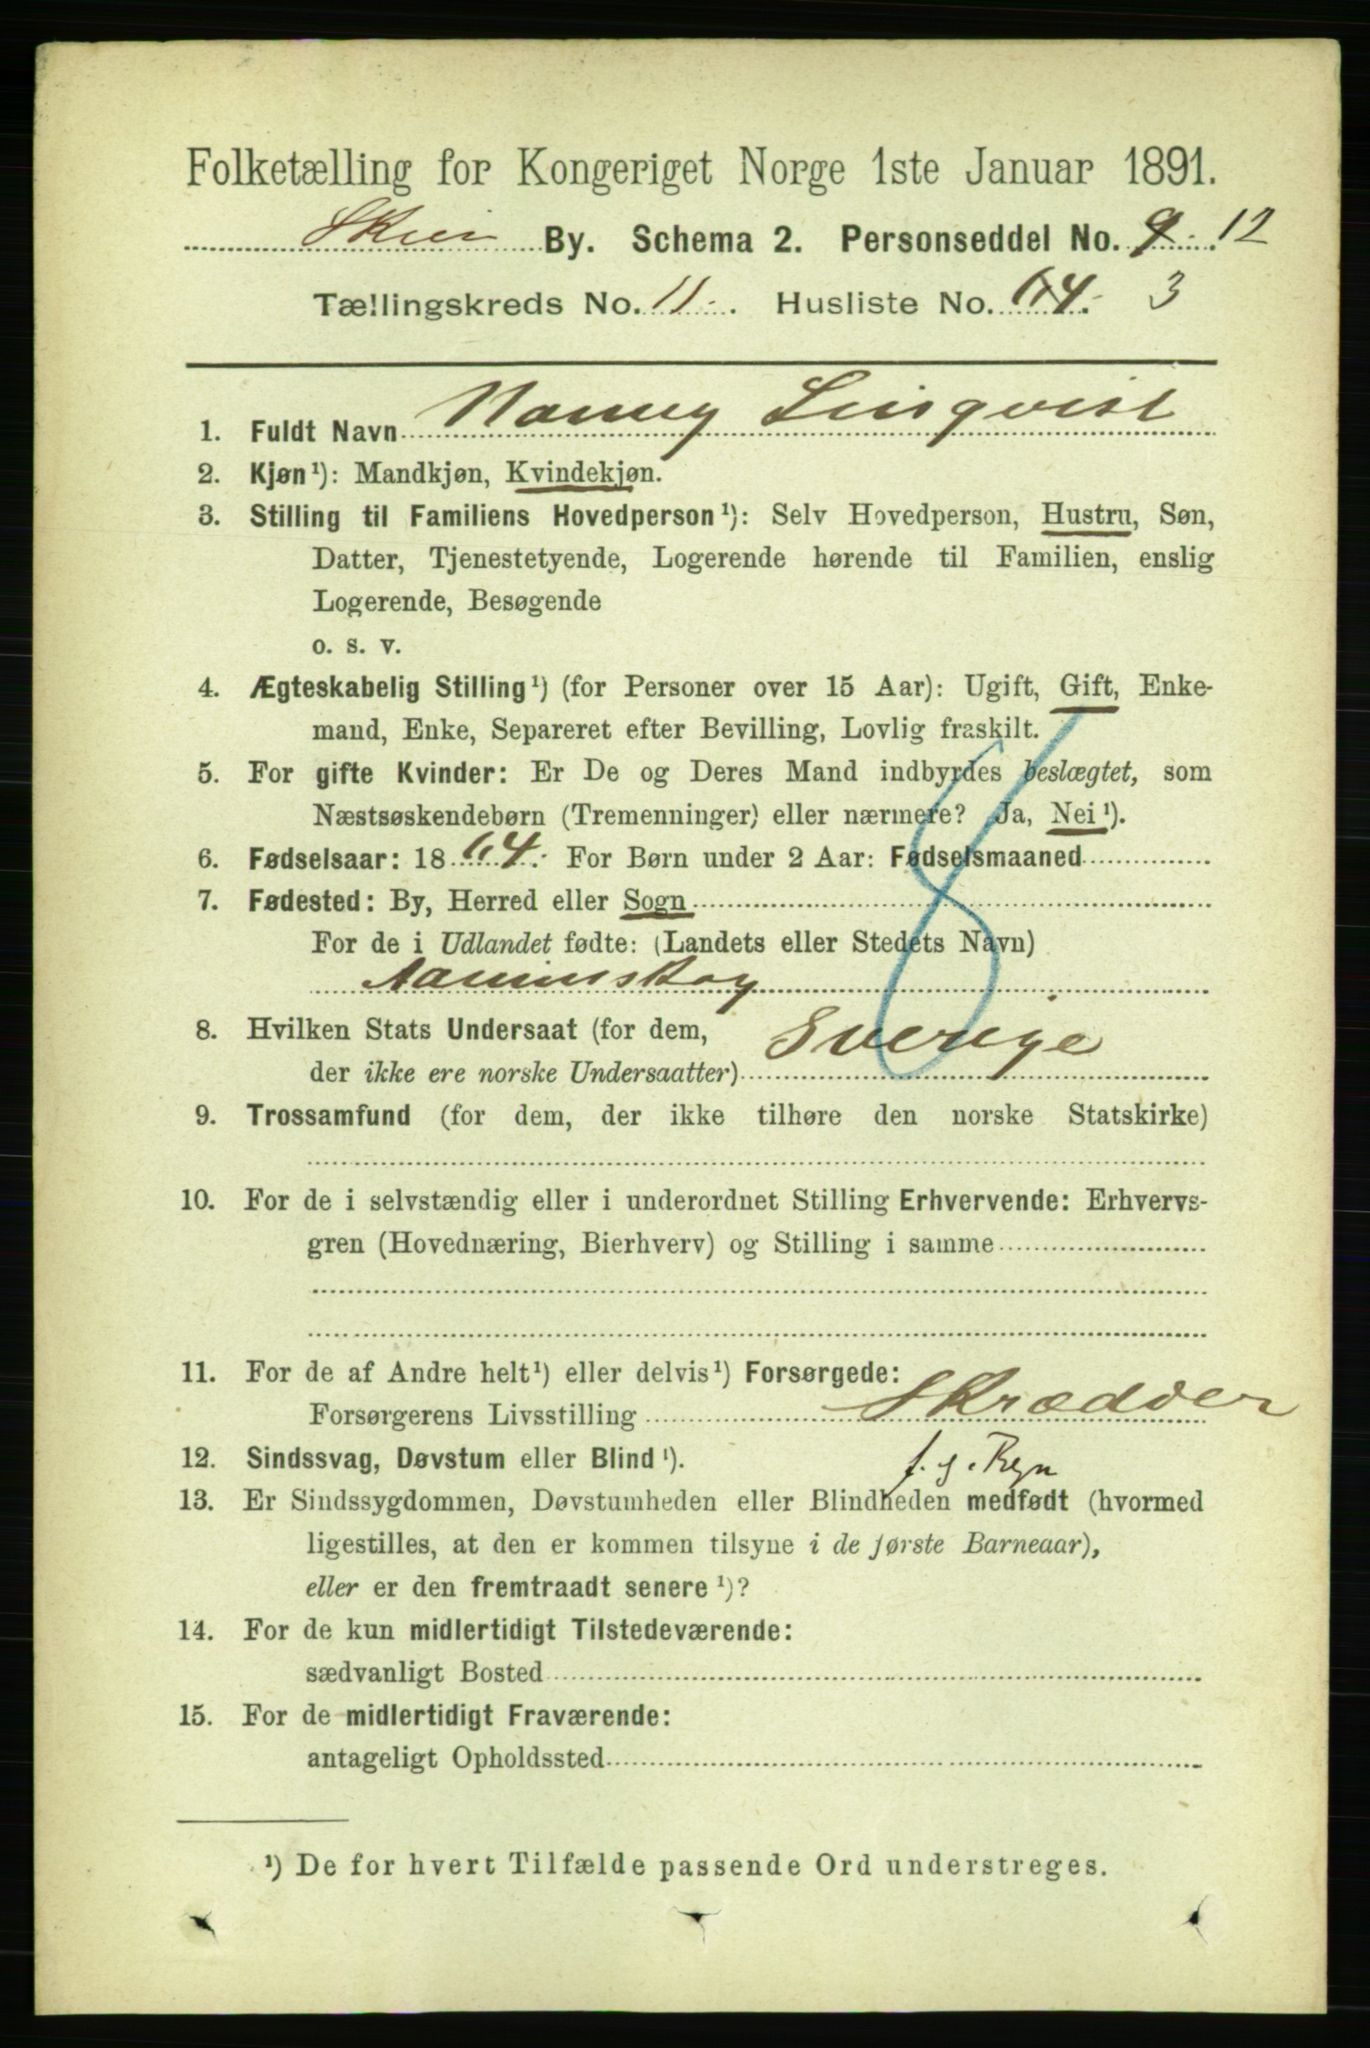 Folketælling for Kongeriget Norge 1ste Januar 1891.
Skien By. Schema 2. Personseddel No. 9. 12
Tællingskreds No. 11. Husliste No. 64. 3
1. Fuldt Navn Nanny Linqvist
2. Kjøn¹): Mandkjøn, Kvindekjøn.
3. Stilling til Familiens Hovedperson¹): Selv Hovedperson, Hustru, Søn,
Datter, Tjenestetyende, Logerende hørende til Familien, enslig
Logerende, Besøgende
o. s. v.
4. Ægteskabelig Stilling¹) (for Personer over 15 Aar): Ugift, Gift, Enke-
mand, Enke, Separeret efter Bevilling, Lovlig fraskilt.
5. For gifte Kvinder: Er De og Deres Mand indbyrdes beslægtet, som
Næstsøskendebørn (Tremenninger) eller nærmere? Ja, Nei¹).
6. Fødselsaar: 1864. For Børn under 2 Aar: Fødselsmaaned
7. Fødested: By, Herred eller Sogn
For de i Udlandet fødte: (Landets eller Stedets Navn)
8. Hvilken Stats Undersaat (for dem, Sverige
der ikke ere norske Undersaatter)
9. Trossamfund (for dem, der ikke tilhøre den norske Statskirke)
10. For de i selvstændig eller i underordnet Stilling Erhvervende: Erhvervs-
gren (Hovednæring, Bierhverv) og Stilling i samme
11. For de af Andre helt¹) eller delvis¹) Forsørgede:
Forsørgerens Livsstilling Skrædder
12. Sindssvag, Døvstum eller Blind¹). f. e. Regn
13. Er Sindssygdommen, Døvstumheden eller Blindheden medfødt (hvormed
ligestilles, at den er kommen tilsyne i de første Barneaar),
eller er den fremtraadt senere¹)?
14. For de kun midlertidigt Tilstedeværende:
sædvanligt Bosted
15. For de midlertidigt Fraværende:
antageligt Opholdssted
¹) De for hvert Tilfælde passende Ord understreges.